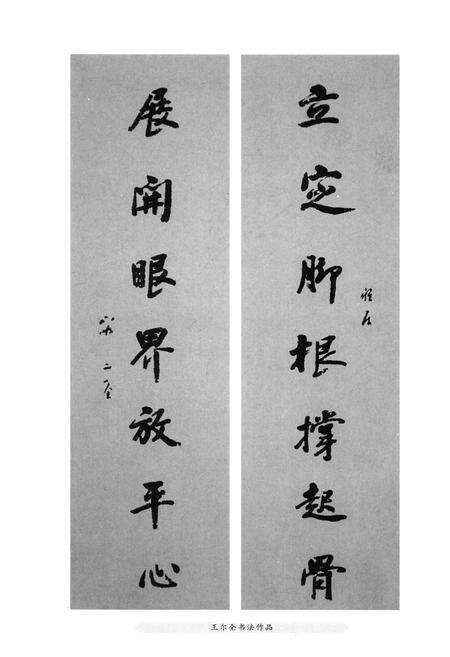 立定脚根撑起骨
展開眼界放平心
王尔全书法作品